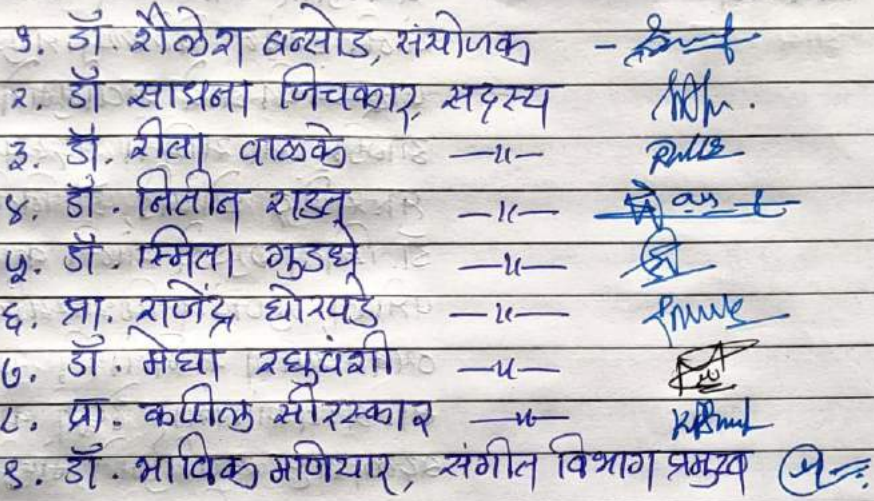 १. डॉ. शैलेश बन्सोड, संयोजक -
२. डॉ साधना जिचकार, सदस्य
३. डॉ. रीता वाळके —॥—
४. डॉ. नितीन राऊत —॥—
५. डॉ. स्मिता गुडधे —॥—
६. प्रा. राजेंद्र घोरपडे —॥—
७. डॉ. मेघा रघुवंशी —॥—
८. प्रा. कपील सीरस्कार —॥—
९. डॉ. भाविक मणियार, संगीत विभाग प्रमुख